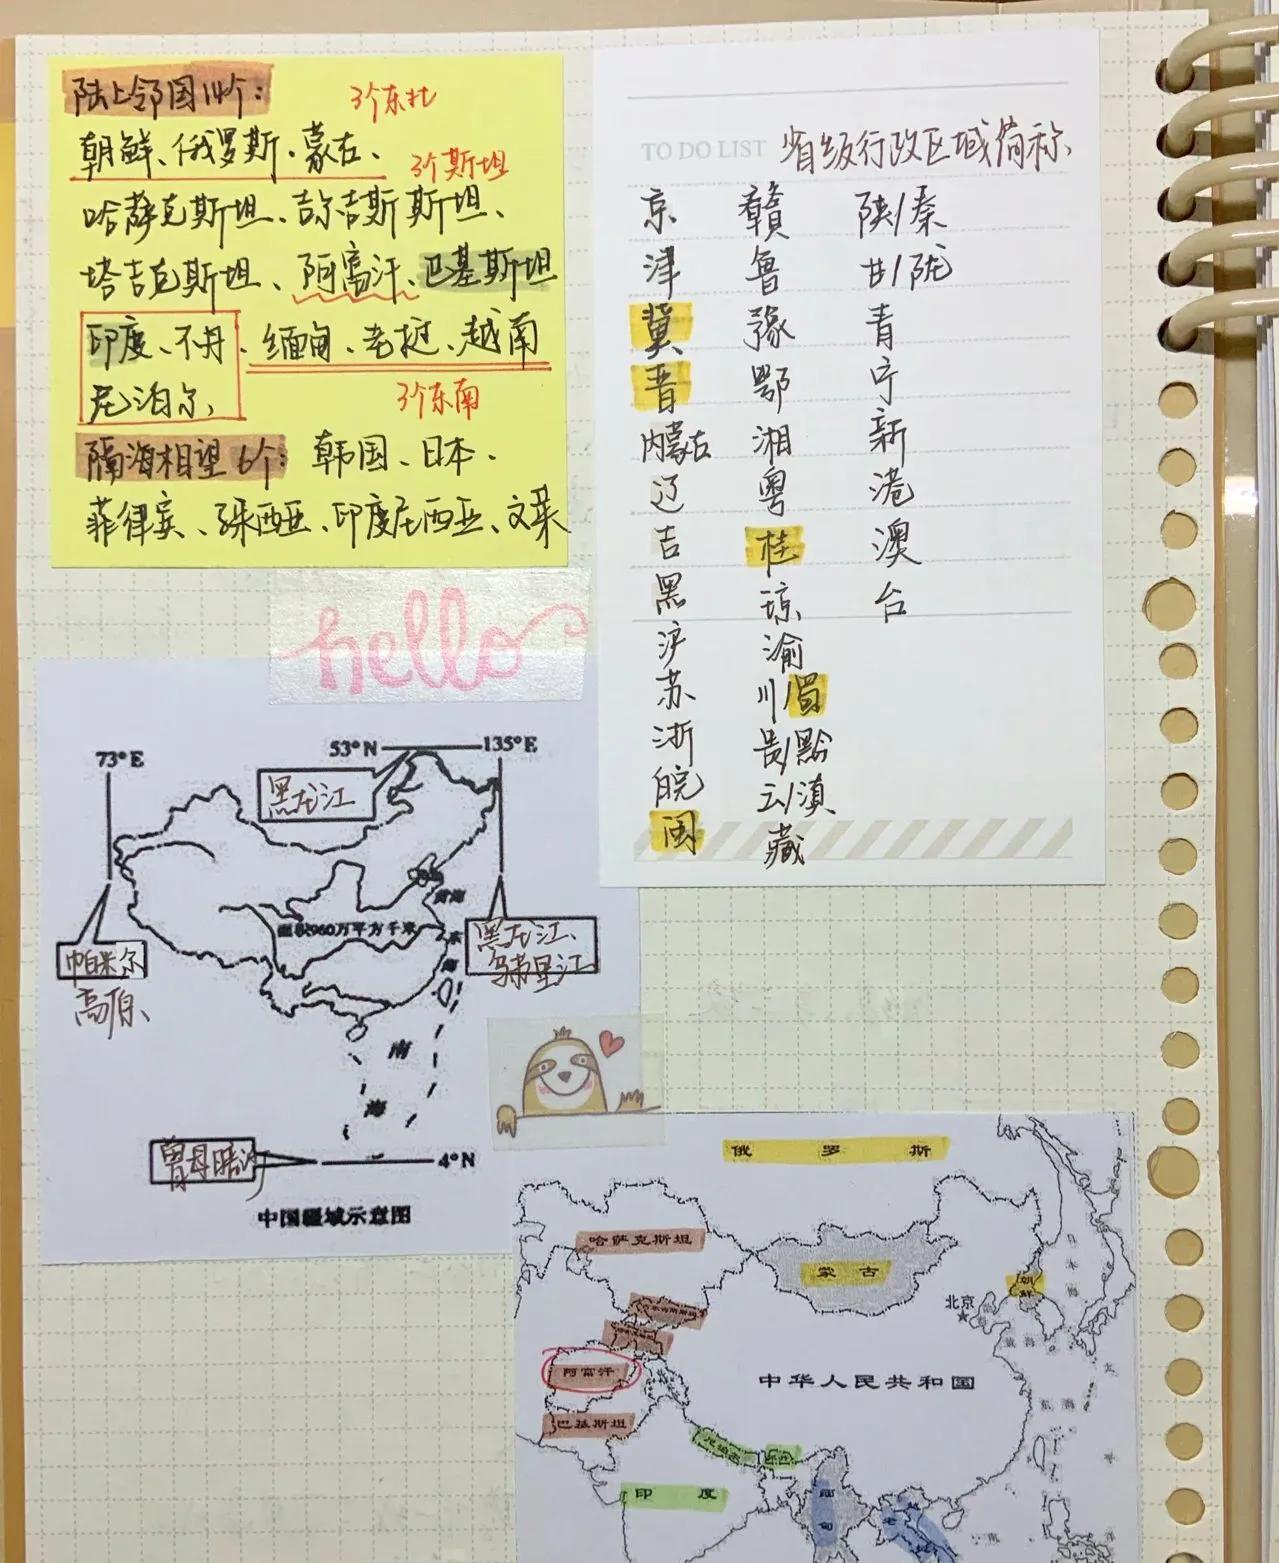 陆上邻国14个:
3个东北
朝鲜、俄罗斯、蒙古、
3个斯坦
哈萨克斯坦、吉尔吉斯斯坦、
塔吉克斯坦、阿富汗、巴基斯坦
印度、不丹、缅甸、老挝、越南
尼泊尔、
3个东南
隔海相望6个: 韩国、日本、
菲律宾、马来西亚、印度尼西亚、文莱
hello
TO DO LIST 省级行政区域简称
京 赣 陕/秦
津 鲁 甘/陇
冀 豫 青
晋 鄂 宁
内蒙古 湘 新
辽 粤 港
吉 桂 澳
黑 琼 台
沪 渝
苏 川/蜀
浙 贵/黔
皖 云/滇
闽 藏
73°E
53°N
135°E
黑龙江
黄海
面积960万平方千米
东
海
帕米尔
高原
黑龙江、
乌苏里江
南
海
曾母暗沙
4°N
中国疆域示意图
俄罗斯
哈萨克斯坦
蒙古
朝鲜
北京
阿富汗
中华人民共和国
巴基斯坦
尼泊尔
印度
缅甸